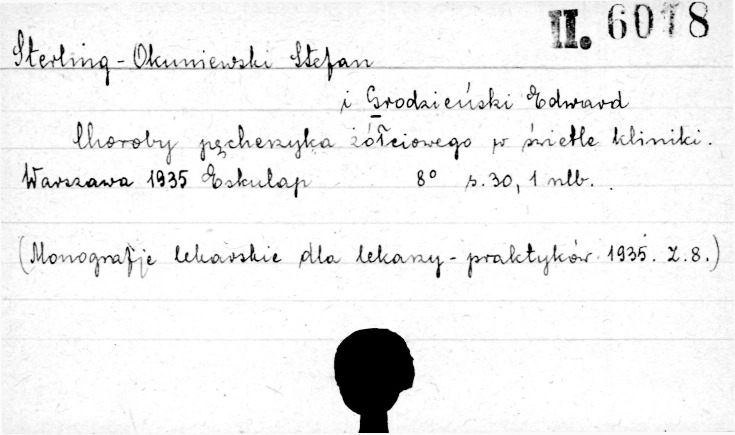 II. 6078
Sterling-Okuniewski Stefan
i Grodzieński Edward
Choroby pęcherzyka żółciowego w świetle kliniki.
Warszawa 1935 Eskulap 8° s. 30, 1 nlb.
(Monografje lekarskie dla lekarzy-praktyków 1935. Z. 8.)